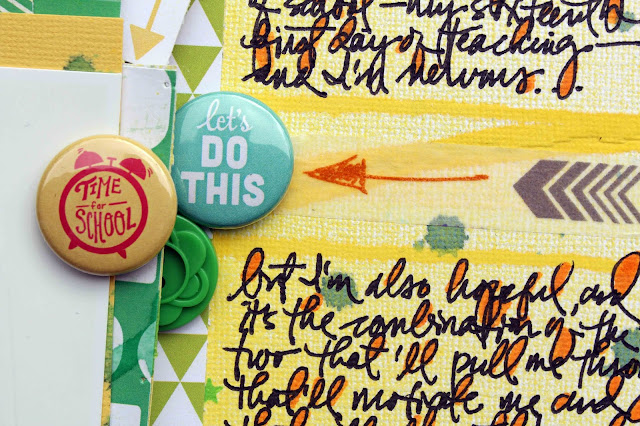 of school—my sixteenth
first day of teaching—
and I'm nervous...
let's
DO
THIS
TIME
for
SCHOOL
but I'm also hopeful, and
it's the combination of the
two that'll pull me throu
that'll motivate me and